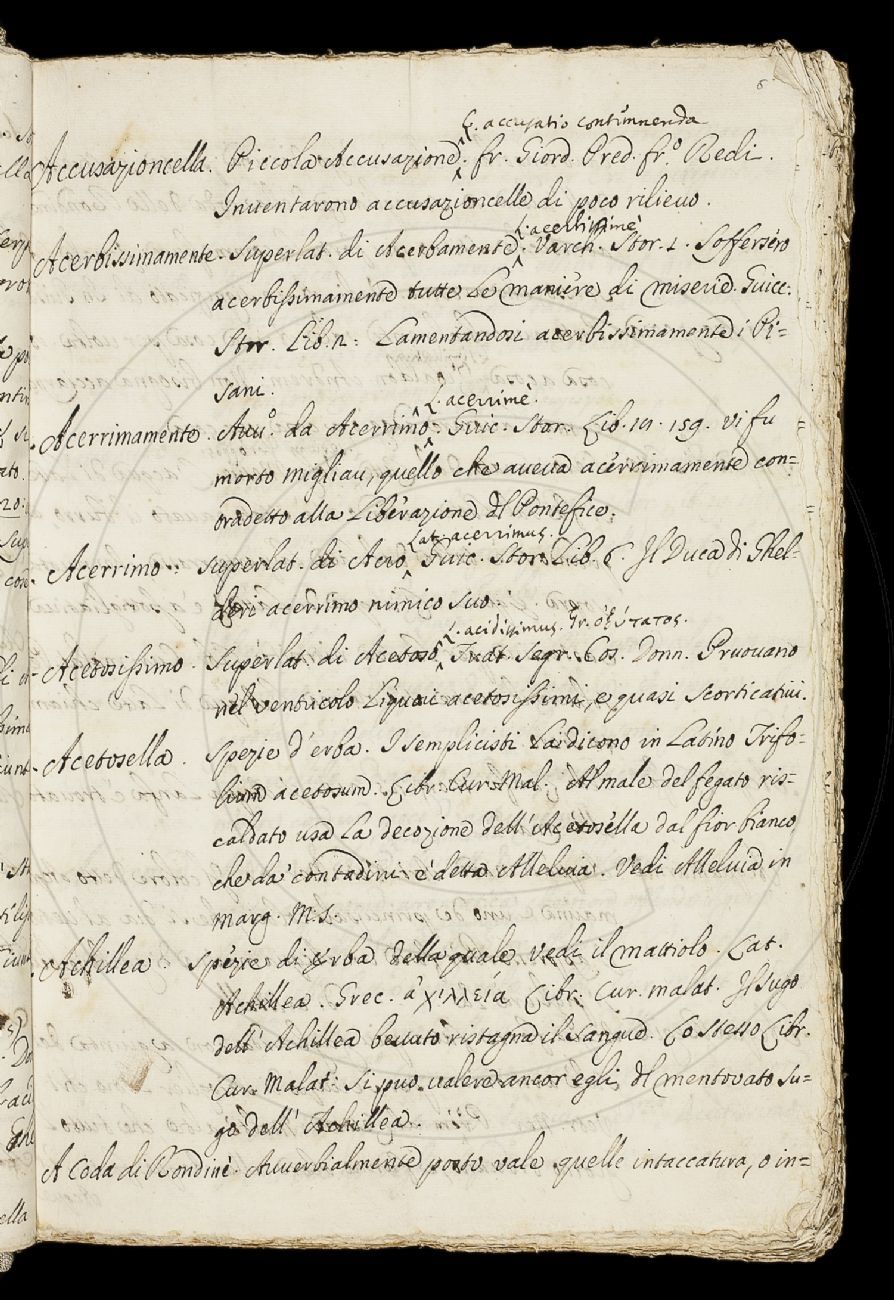 6
L. accusatio contimnenda
Accusazioncella. Piccola Accusazione. fr. Giord. Pred. fr.º Redi.
Inventarono accusazioncelle di poco rilievo.
L. acerbissimè
Acerbissimamente. Superlat. di Acerbamente. Varch. Stor. 1. Soffersero
acerbissimamente tutte Le maniere di miserie. Guicc.
Stor. Lib. n: Lamentandosi acerbissimamente i Pi=
sani.
L. acerrimè.
Acerrimamente. Avv.º da Acerrimo. Guic. Stor. Lib. 159. vi fu
morto migliau, quello che aveva acerrimamente con=
tradetto alla Liberazione del Pontefice.
Lat. acerrimus.
Acerrimo. Superlat. di Acro Guic. Stor. Lib. 6. Il Duca di Ghel=
deri acerrimo nimico suo.
L. acidissimus. Gr. ὀξύτατος.
Acetosissimo. Superlat. di Acetoso Trat. Segr. Cos. Donn. Pruovano
nel ventricolo Liquori acetosissimi, e quasi scorticativi.
Acetosella. Spezie d'erba. I semplicisti La dicono in Latino Trifo=
lium acetosum. Libr. Cur. Mal. Al male del fegato ris=
caldato usa La decozione dell'Acetosella dal fior bianco
che da' contadini è detta Alleluia. Vedi Alleluia in
marg. M.S.
Achillea. Spezie di Erba della quale vedi il Mattiolo. Lat.
Achillea. Grec. ἀχιλλεία Libr. Cur. malat. Il Sugo
dell'Achillea beuuto ristagna il Sangue. Lo stesso Libr.
Cur. Malat. Si può valere ancor egli del mentovato su=
go dell'Achillea.
A Coda di Rondine. Avverbialmente posto vale quelle intaccatura, o in=